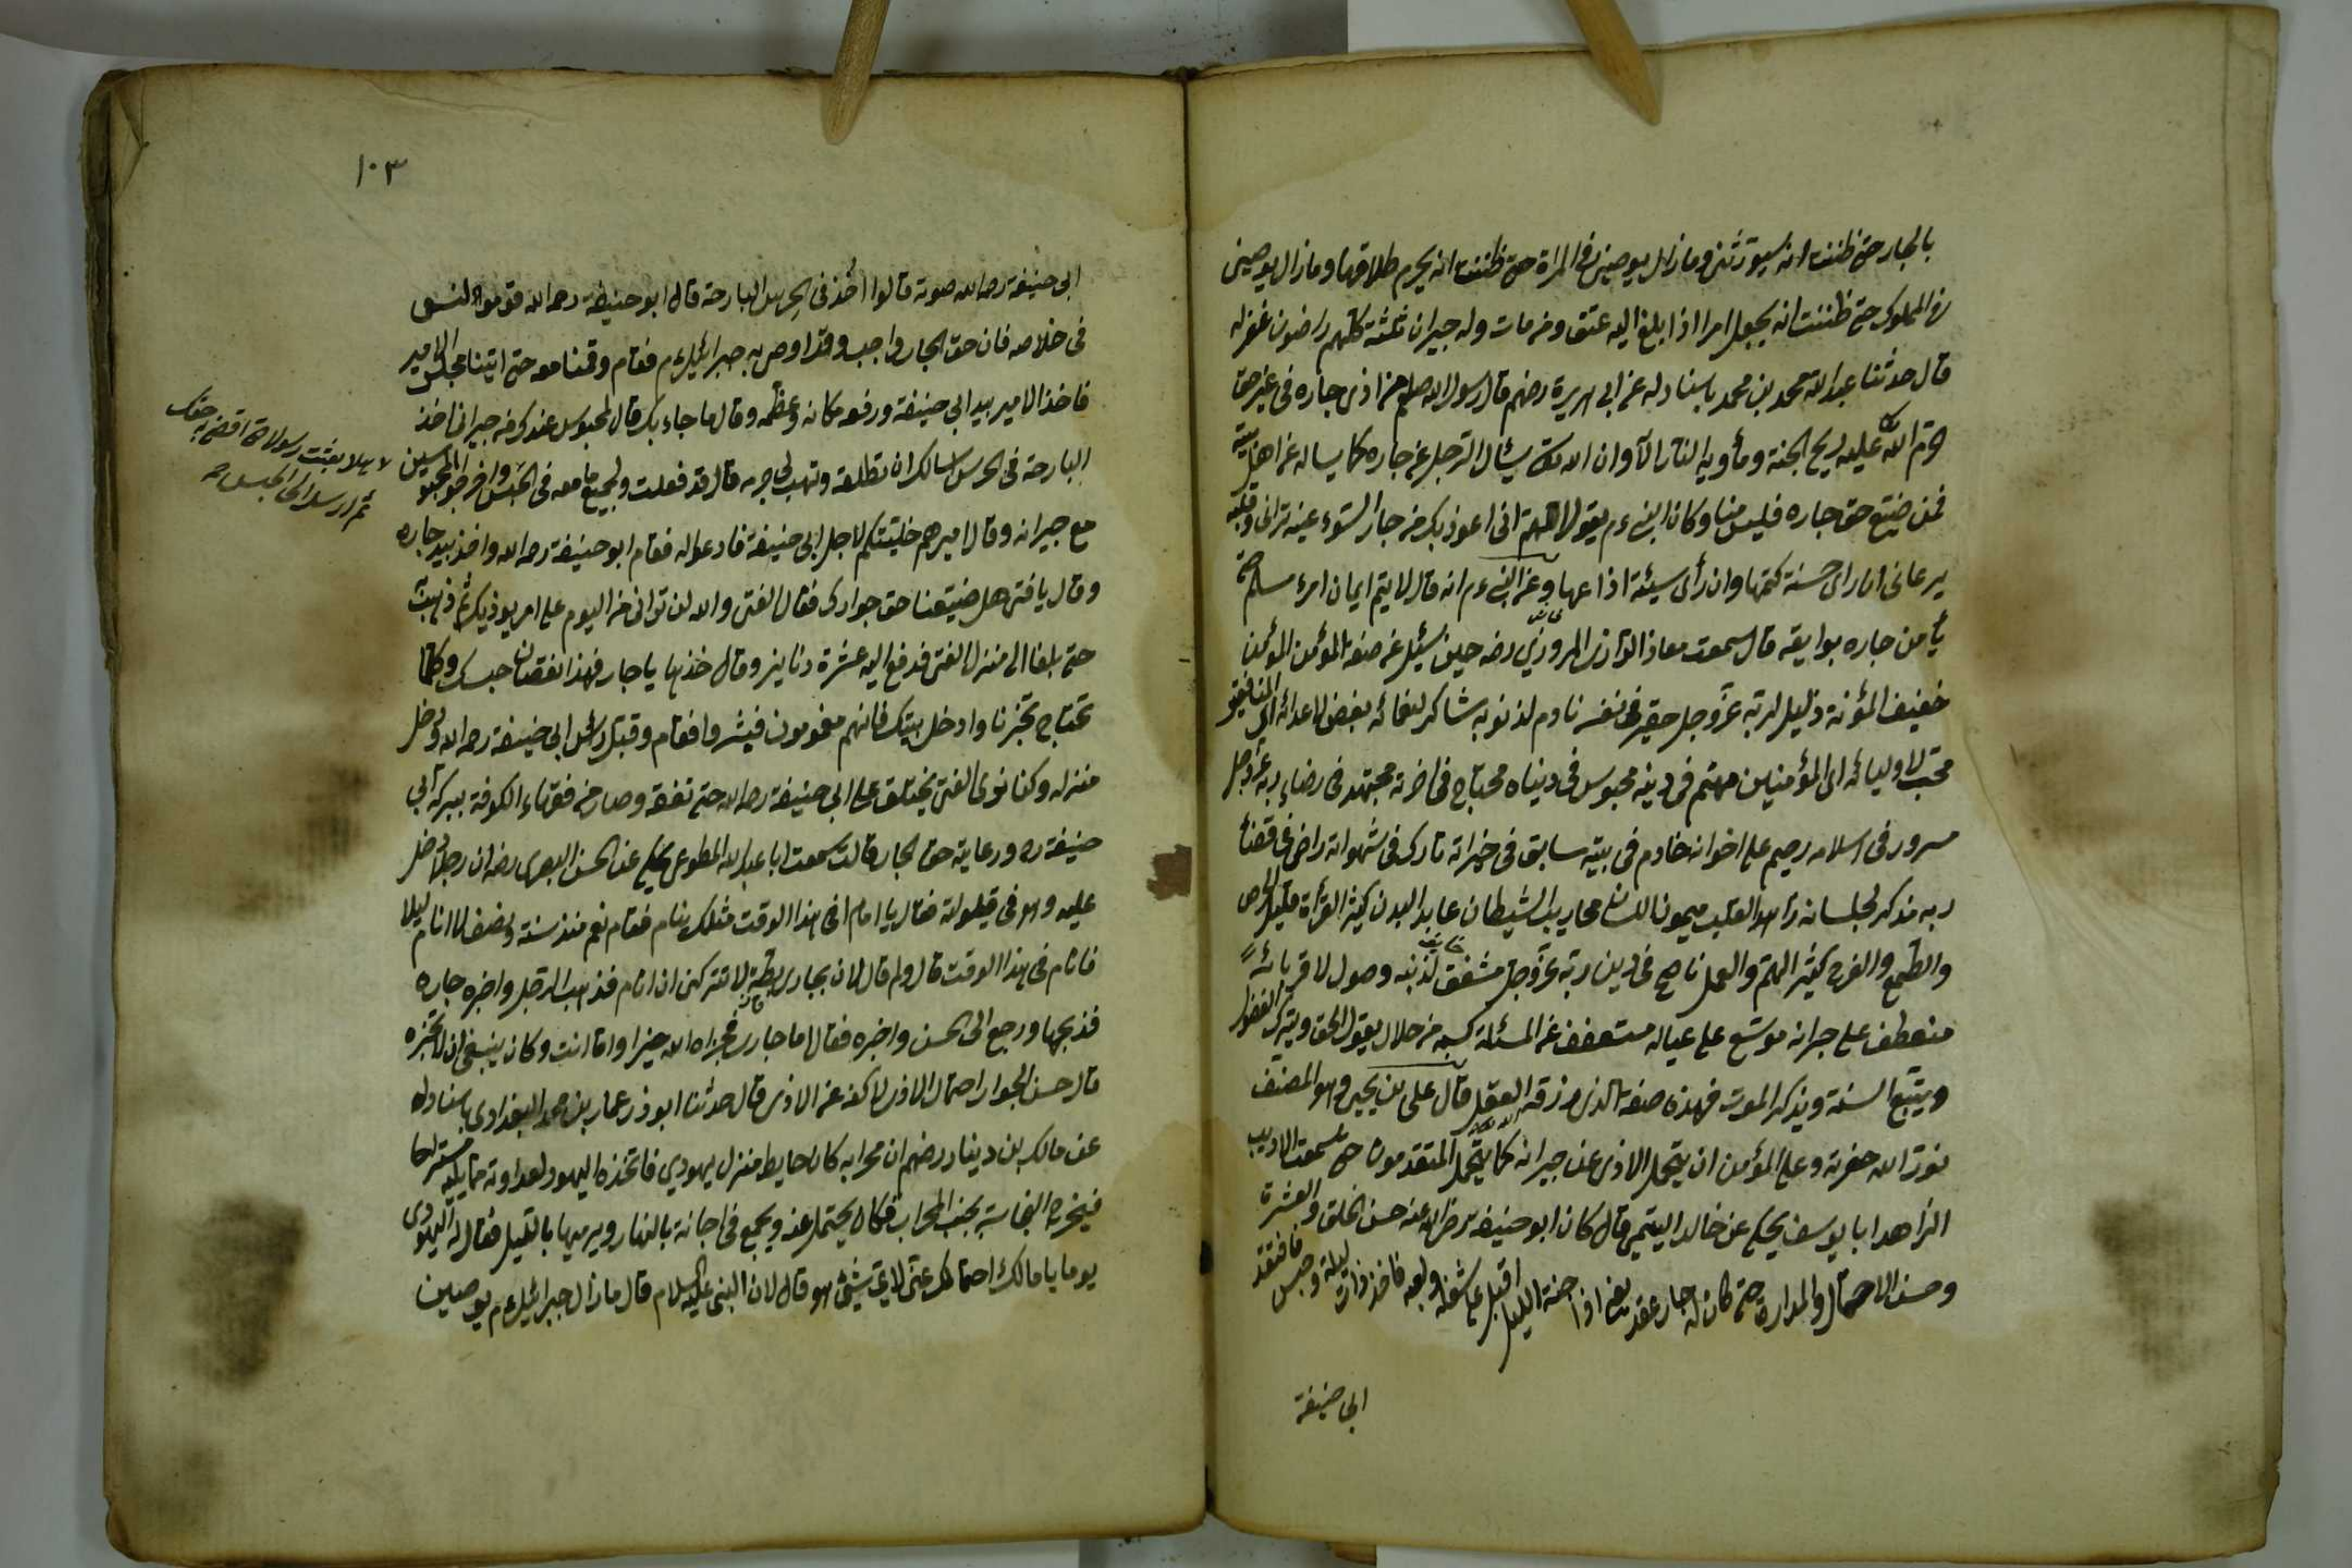 بالجار حتى ظننت انه سيورثنى وما زال يوصينى فى المرأة حتى ظننت انه يحرم طلاقها وما زال يوصينى
فى المملوك حتى ظننت انه يجعل امرا اذا بلغ اليه عتق ومن مات وله جيران ثلثة كلهم راضون غفر له
قال حدثنا عبد الله محمد بن محمد باسناد له عن ابى هريرة رضهم قال رسول الله صلعم من اذى جاره فى غير حق
حرم الله عليه ريح الجنة ومأويه النار الا وان الله يسئال الرجل عن جاره كما يساله عن اهل بيته
فمن ضيّع حق جاره فليس منا وكان النبى ءم يقول اللهم انى اعوذ بك من جار السّوء عينه ترانى وقلبه
يرعانى ان راى حسنة كتمها وان رأى سيئة اذاعها وعن النبى ءم انه قال لا يتم ايمان امرء مسلم حتى
يأمن جاره بوايقه قال سمعت معاذ الرازى المروزى رضه حين سئيل عن صفة المؤمن المؤمن
خفيف المؤنة ذليل لربه عزّ وجل حقير فى نفسه نادم لذنوبه شاكر لنعمائه بغض لاعدائه اى المنافقين
محب لاوليائه اى المؤمنين مهتم فى دينه محبوس فى دنياه محتاج فى اخرته مجتهد فى رضاء ربه عز وجل
مسرور فى اسلامه رحيم على اخوانه خادم فى بيته سابق فى خيراته تارك فى شهواته راض عن قضاء
ربه مذكر لجلسائه زاهد القلب ميمون اللسان محارب الشيطان عابد البدن كثير القرأة قليل الحرص
والطمع والفرح كثير الهم والعمل ناصح فى دين ربه عزّ وجل مشفق لذنبه وصول لاقربائه
منعطف على جيرانه موسّع على عياله مستعفف عن المسئلة كسبه من حلال يقول الحق ويترك الفضول
ويتبع السنة ويذكر الموت فهذه صفة الذى رزقه الله العقل قال على بن يحيى وهو المصنف
نور الله حفرته وعلى المؤمن ان يتحمل الاذى عن جيرانه كما يتحمل المتقدمون حتى سمعت الاديب
الزاهد ابا يوسف يحكى عن خالد اليتمى قال كان ابو حنيفة رضى الله عنه حسن الخلق والعشرة
وحسن الاحتمال والمدارة حتى كان له جار عقد بغى اذا جنه الليل اقبل على شغله ولعبه فاخذ ذات ليلة وحبس فافتقد
ابى حنيفة
١٠٣
ابى حنيفة رحمه الله صوته قالوا اخذ فى الحرس البارحة قال ابو حنيفة رحمه الله قوموا لنسعى
فى خلاصه فان حق الجار واجب وقد اوصى به جبرائيل ءم فقام وقمنا معه حتى اتينا مجلس الامير
فاخذ الامير بيد ابى حنيفة ورفع مكانه وعظّمه وقال ما جاء بك قال محبوس عندك من جيرانى اخذ
البارحة فى الحرس اسالك ان تطلقه وتهب لى جرمه قال قد فعلت ولجميع ما معه فى الحبس واخرجوا المحبوسين
هلا بعثت رسولا حتى اقضى به حقك
ثم ارسل الى الحبس صح
مع جيرانه وقال اميرهم خليتكم لاجل ابى حنيفة فادعوا له فقام ابو حنيفة رحمه الله واخذ بيد جاره
وقال يا فتى هل ضيعنا حق جوارك فقال الفتى والله لن ترانى من اليوم على امر يوذيك ثم ذهبت
حتى بلغا الى منزل الفتى فدفع اليه عشرة دنانير وقال خذها يا جار فهذا نقصان حبسك وكلما
تحتاج تخبرنا وادخل بيتك فانهم مغمومون فيشروا فقام وقبل رأس ابى حنيفة رحمه الله ودخل
منزله وكنا نرى الفتى يختلف على ابى حنيفة رحمه الله حتى تفقه وصار من فقهاء الكوفة ببركة ابى
حنيفة ره ورعاية حق الجار قالت سمعت ابا عبد الله المطوعى يحكى عن الحسن البصرى رضه ان رجلا دخل
عليه وهو فى قيلولته فقال يا امام افى هذا الوقت مثلك ينام فقام نعم منذ سنة ونصف لا انام ليلا
فانام فى هذا الوقت قال ولم قال لان بجارى بطة لا تتركنى ان انام فذهب الرجل واخبره جاره
فذبحها ورجع الى الحسن واخبره فقال اما جارى فجزاه الله خيرا واما انت وكان ينبغى ان لا تخبره
قال حسن الجوار احتمال الاذى لا كفه عن الاذى قال حدثنا ابو ذر عمار بن محمد البغدادى باسناد له
عن مالك بن دينار رضهم ان محرابه كان حايط منزل يهودي فاتخذه اليهود لعداوته مما يليه مستراحا
فيخرج النجاسة بجنب المحراب فكان يحتمل عنه ويجمع فى اجانة بالنهار ويرميها بالليل فقال له اليهودى
يوما يا مالك احتمالك عنى لاى شئ هو قال لان النبى عليه السلام قال ما زال جبرائيل ءم يوصينى